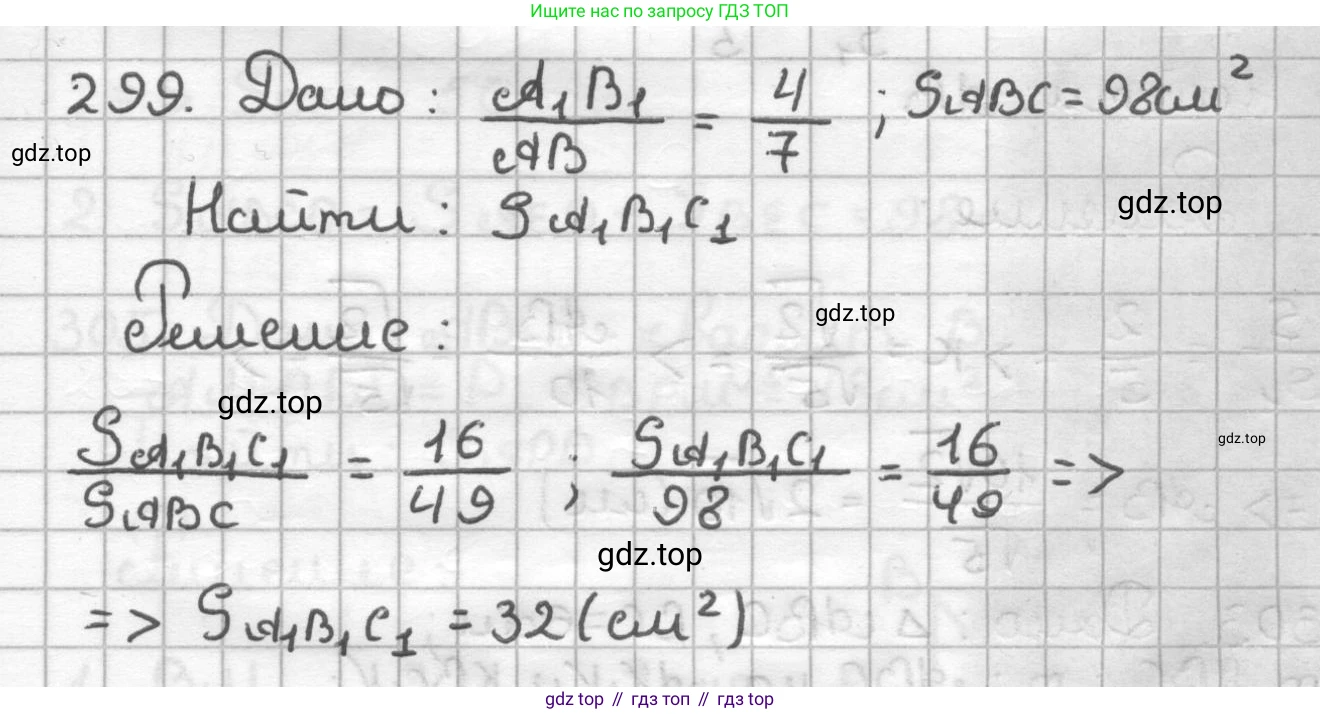 Ищите нас по запросу ГДЗ ТОП
299. Дано: A₁B₁/AB = 4/7 ; SABC = 98см²
gdz.top
Найти: SA₁B₁C₁
gdz.top
Решение:
gdz.top
gdz.top
SA₁B₁C₁/SABC = 16/49 ; SA₁B₁C₁/98 = 16/49 =>
gdz.top
gdz.top
=> SA₁B₁C₁ = 32 (см²)
gdz top // гдз топ // гдз top